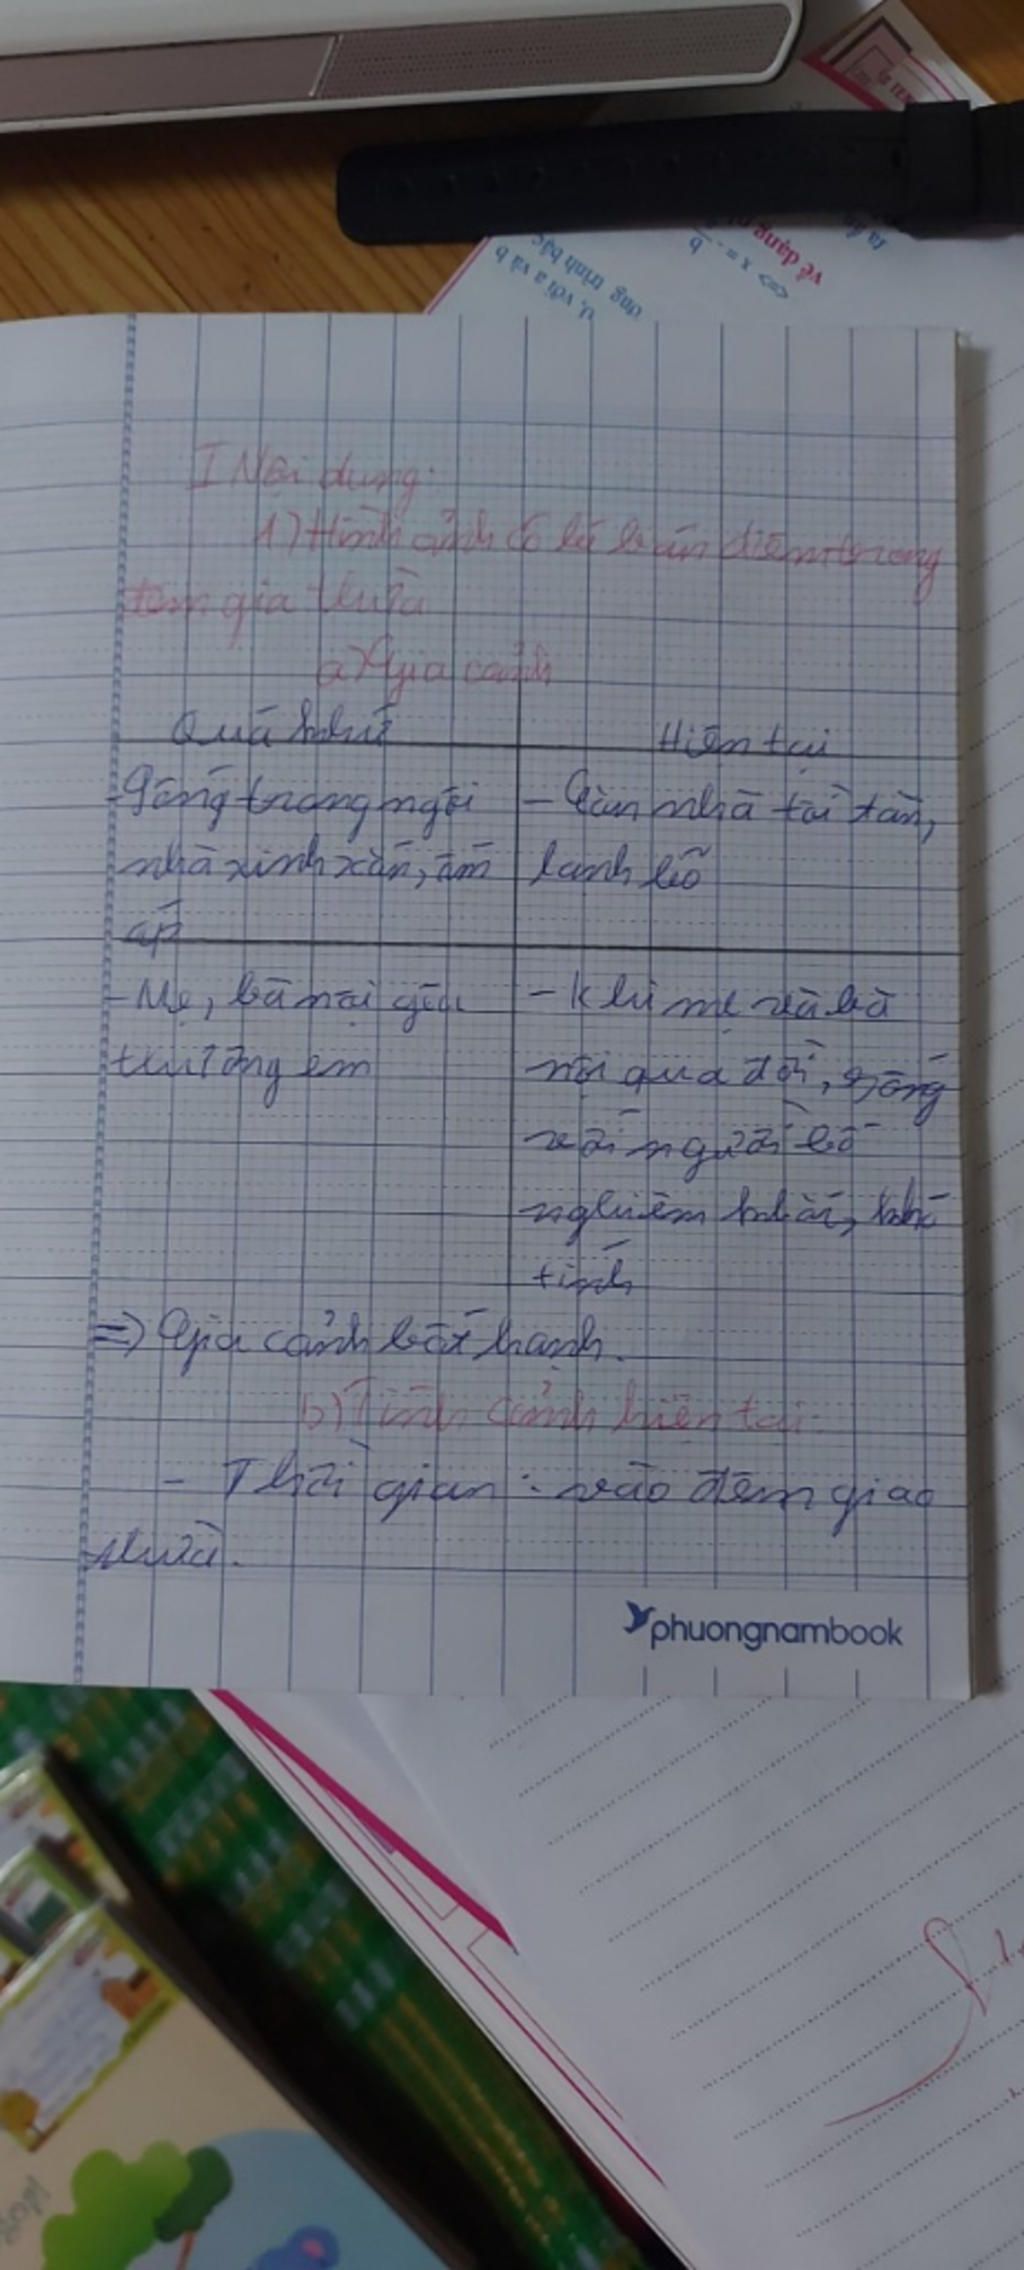 về dạng
<=> x = - b
ông trình bậc
0, với a và b
I Nội dung:
1) Hình ảnh cô bé bán diêm trong
đêm giao thừa
a) Gia cảnh
Quá khứ
Hiện tại
- Sống trong ngôi
nhà xinh xắn, ấm
áp
- Căn nhà tối tăm,
lạnh lẽo
- Mẹ, bà nội yêu
thương em
- Khi mẹ và bà
nội qua đời, sống
với người bố
nghiêm khắc, khó
tính
=> Gia cảnh bất hạnh.
b) Tình cảnh hiện tại:
- Thời gian: vào đêm giao
thừa.
phuongnambook